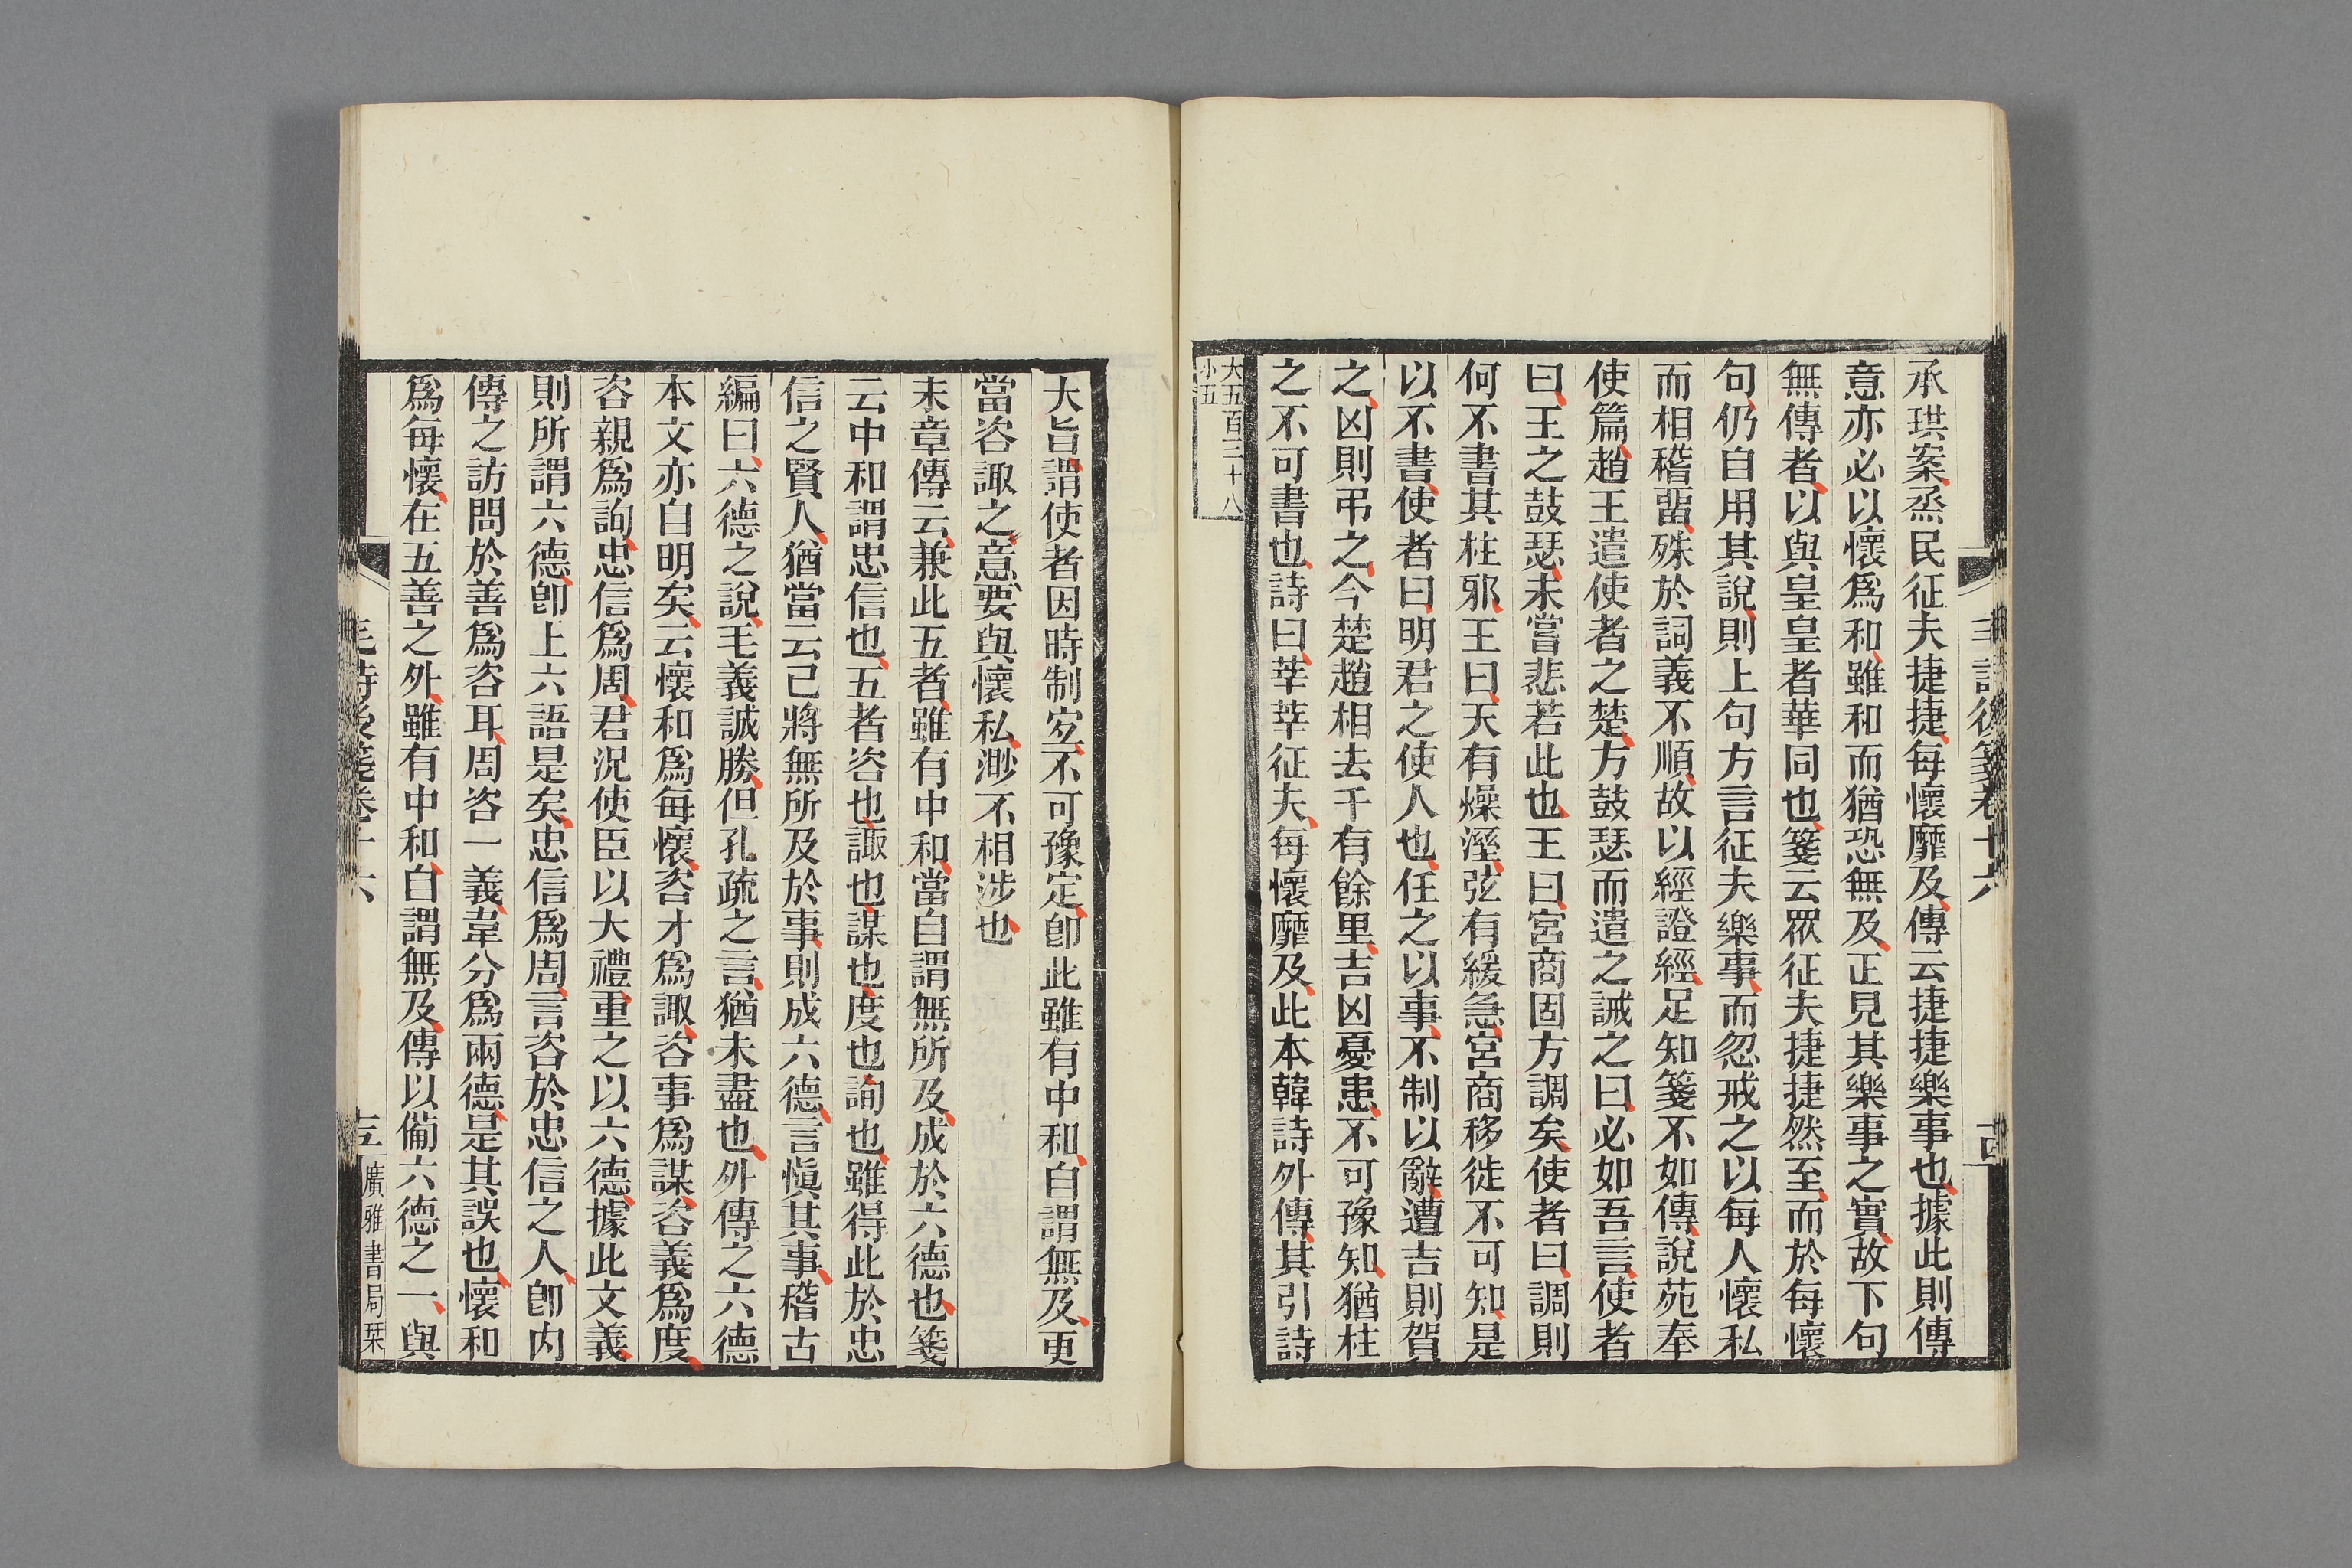 承珙案烝民征夫捷捷每懷靡及傳云捷捷樂事也據此則傳
意亦必以懷爲和雖和而猶恐無及正見其樂事之實故下句
無傳者以與皇皇者華同也箋云眾征夫捷捷然至而於每懷
句仍自用其說則上句方言征夫樂事而忽戒之以每人懷私
而相稽畱殊於詞義不順故以經證經足知箋不如傳說苑奉
使篇趙王遣使者之楚方鼓瑟而遣之誡之曰必如吾言使者
曰王之鼓瑟未嘗悲若此也王曰宮商固方調矣使者曰調則
何不書其柱邪王曰天有燥溼弦有緩急宮商移徙不可知是
以不書使者曰明君之使人也任之以事不制以辭遭吉則賀
之凶則弔之今楚趙相去千有餘里吉凶憂患不可豫知猶柱
之不可書也詩曰莘莘征夫每懷靡及此本韓詩外傳其引詩
大五百二十八
小五
毛詩後箋卷十六
十四
大旨謂使者因時制宐不可豫定卽此雖有中和自謂無及更
當咨諏之意要與懷私渺不相涉也
末章傳云兼此五者雖有中和當自謂無所及成於六德也箋
云中和謂忠信也五者咨也諏也謀也度也詢也雖得此於忠
信之賢人猶當云己將無所及於事則成六德言愼其事稽古
編曰六德之說毛義誠勝但孔疏之言猶未盡也外傳之六德
本文亦自明矣云懷和爲每懷咨才爲諏咨事爲謀咨義爲度
咨親爲詢忠信爲周君況使臣以大禮重之以六德據此文義
則所謂六德卽上六語是矣忠信爲周言咨於忠信之人卽内
傳之訪問於善爲咨耳周咨一義韋分爲兩德是其誤也懷和
爲每懷在五善之外雖有中和自謂無及傳以僃六德之一與
毛詩後箋卷十六
十五
廣雅書局栞